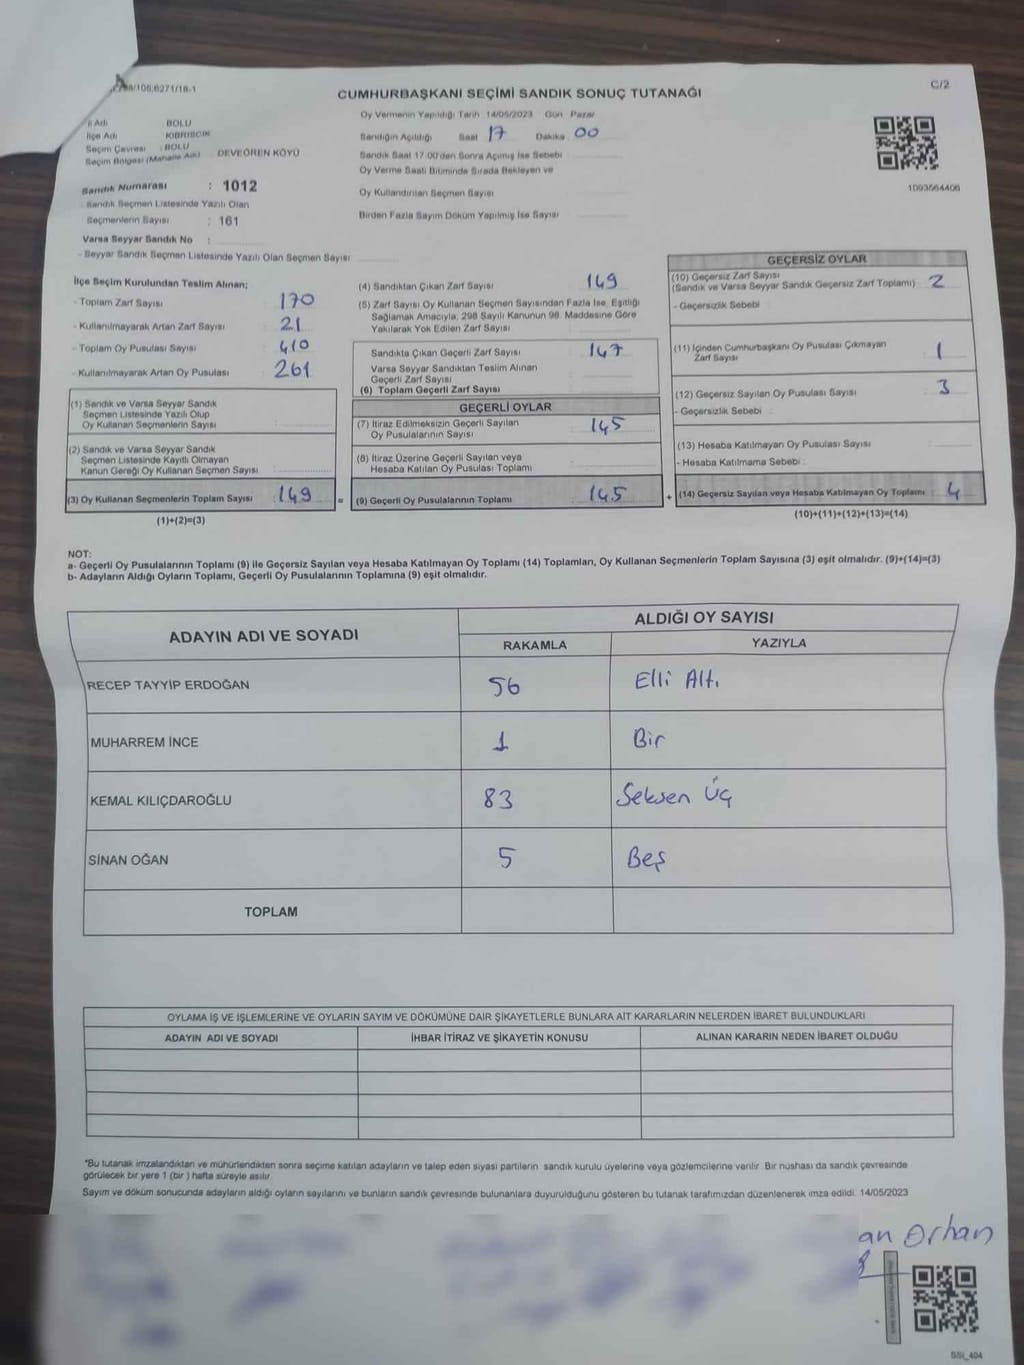 CUMHURBAŞKANI SEÇİMİ SANDIK SONUÇ TUTANAĞI
C/2
Oy Vermenin Yapıldığı Tarih 14/05/2023 Gün Pazar
İl Adı BOLU
İlçe Adı KIBRISCIK
Seçim Çevresi : BOLU
Seçim Bölgesi (Mahalle Adı) : DEVEÖREN KÖYÜ
Sandığın Açıldığı Saat 17 Dakika 00
Sandık Saat 17:00'den Sonra Açımış İse Sebebi
Oy Verme Saati Bitiminde Sırada Bekleyen ve
Oy Kullandırılan Seçmen Sayısı
Birden Fazla Sayım Döküm Yapılmış İse Sayısı
1093564406
Sandık Numarası : 1012
Sandık Seçmen Listesinde Yazılı Olan
Seçmenlerin Sayısı : 161
Varsa Seyyar Sandık No :
- Seyyar Sandık Seçmen Listesinde Yazılı Olan Seçmen Sayısı :
İlçe Seçim Kurulundan Teslim Alınan;
- Toplam Zarf Sayısı : 170
- Kullanılmayarak Artan Zarf Sayısı : 21
- Toplam Oy Pusulası Sayısı : 410
- Kullanılmayarak Artan Oy Pusulası : 261
(1) Sandık ve Varsa Seyyar Sandık
Seçmen Listesinde Yazılı Olup
Oy Kullanan Seçmenlerin Sayısı :
(2) Sandık ve Varsa Seyyar Sandık
Seçmen Listesinde Kayıtlı Olmayan
Kanun Gereği Oy Kullanan Seçmen Sayısı :
(3) Oy Kullanan Seçmenlerin Toplam Sayısı : 149 =
(1)+(2)=(3)
(4) Sandıktan Çıkan Zarf Sayısı : 149
(5) Zarf Sayısı Oy Kullanan Seçmen Sayısından Fazla İse, Eşitliği
Sağlamak Amacıyla, 298 Sayılı Kanunun 98. Maddesine Göre
Yakılarak Yok Edilen Zarf Sayısı :
Sandıkta Çıkan Geçerli Zarf Sayısı : 147
Varsa Seyyar Sandıktan Teslim Alınan
Geçerli Zarf Sayısı :
(6) Toplam Geçerli Zarf Sayısı :
GEÇERLİ OYLAR
(7) İtiraz Edilmeksizin Geçerli Sayılan
Oy Pusulalarının Sayısı : 145
(8) İtiraz Üzerine Geçerli Sayılan veya
Hesaba Katılan Oy Pusulası Toplamı :
(9) Geçerli Oy Pusulalarının Toplamı : 145 +
GEÇERSİZ OYLAR
(10) Geçersiz Zarf Sayısı
(Sandık ve Varsa Seyyar Sandık Geçersiz Zarf Toplamı) : 2
- Geçersizlik Sebebi :
(11) İçinden Cumhurbaşkanı Oy Pusulası Çıkmayan
Zarf Sayısı : 1
(12) Geçersiz Sayılan Oy Pusulası Sayısı : 3
- Geçersizlik Sebebi :
(13) Hesaba Katılmayan Oy Pusulası Sayısı :
- Hesaba Katılmama Sebebi :
(14) Geçersiz Sayılan veya Hesaba Katılmayan Oy Toplamı : 4
(10)+(11)+(12)+(13)=(14)
NOT:
a- Geçerli Oy Pusulalarının Toplamı (9) ile Geçersiz Sayılan veya Hesaba Katılmayan Oy Toplamı (14) Toplamları, Oy Kullanan Seçmenlerin Toplam Sayısına (3) eşit olmalıdır. (9)+(14)=(3)
b- Adayların Aldığı Oyların Toplamı, Geçerli Oy Pusulalarının Toplamına (9) eşit olmalıdır.
ADAYIN ADI VE SOYADI
ALDIĞI OY SAYISI
RAKAMLA YAZIYLA
RECEP TAYYİP ERDOĞAN 56 Elli Altı
MUHARREM İNCE 1 Bir
KEMAL KILIÇDAROĞLU 83 Seksen Üç
SİNAN OĞAN 5 Beş
TOPLAM
OYLAMA İŞ VE İŞLEMLERİNE VE OYLARIN SAYIM VE DÖKÜMÜNE DAİR ŞİKAYETLERLE BUNLARA AİT KARARLARIN NELERDEN İBARET BULUNDUKLARI
ADAYIN ADI VE SOYADI İHBAR İTİRAZ VE ŞİKAYETİN KONUSU ALINAN KARARIN NEDEN İBARET OLDUĞU
*Bu tutanak imzalandıktan ve mühürlendikten sonra seçime katılan adayların ve talep eden siyasi partilerin sandık kurulu üyelerine veya gözlemcilerine verilir. Bir nüshası da sandık çevresinde
görülecek bir yere 1 (bir) hafta süreyle asılır.
Sayım ve döküm sonucunda adayların aldığı oyların sayılarını ve bunların sandık çevresinde bulunanlara duyurulduğunu gösteren bu tutanak tarafımızdan düzenlenerek imza edildi. 14/05/2023
an Orhan
SSİ_404